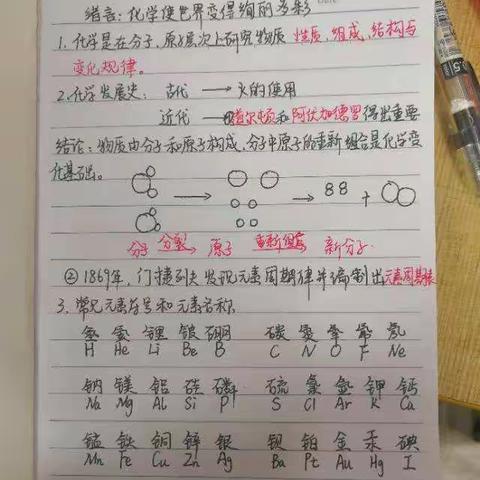 绪言:化学使世界变得绚丽多彩
1.化学是在分子、原子层次上研究物质 性质、组成、结构与
变化规律。
2.化学发展史: 古代 → 火的使用
近代 → ①道尔顿和阿伏加德罗得出重要
结论:物质由分子和原子构成,分子中原子的重新组合是化学变
化基础。
88 +
分子 分裂 原子 重新组合 新分子.
②1869年,门捷列夫发现元素周期律并编制出元素周期表
3.常见元素符号和元素名称.
氢 氦 锂 铍 硼 碳 氮 氧 氟 氖
H He Li Be B C N O F Ne
钠 镁 铝 硅 磷 硫 氯 氩 钾 钙
Na Mg Al Si P S Cl Ar K Ca
锰 铁 铜 锌 银 钡 铂 金 汞 碘
Mn Fe Cu Zn Ag Ba Pt Au Hg I
0.5